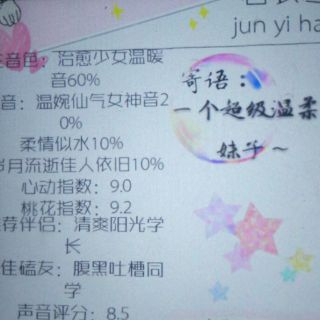 jun yi ha
主音色：治愈少女温暖
音60%
音：温婉仙气女神音2
0%
柔情似水10%
岁月流逝佳人依旧10%
心动指数：9.0
桃花指数：9.2
推荐伴侣：清爽阳光学
长
佳磕友：腹黑吐槽同
学
声音评分：8.5
寄语：
一个超级温柔
妹子～